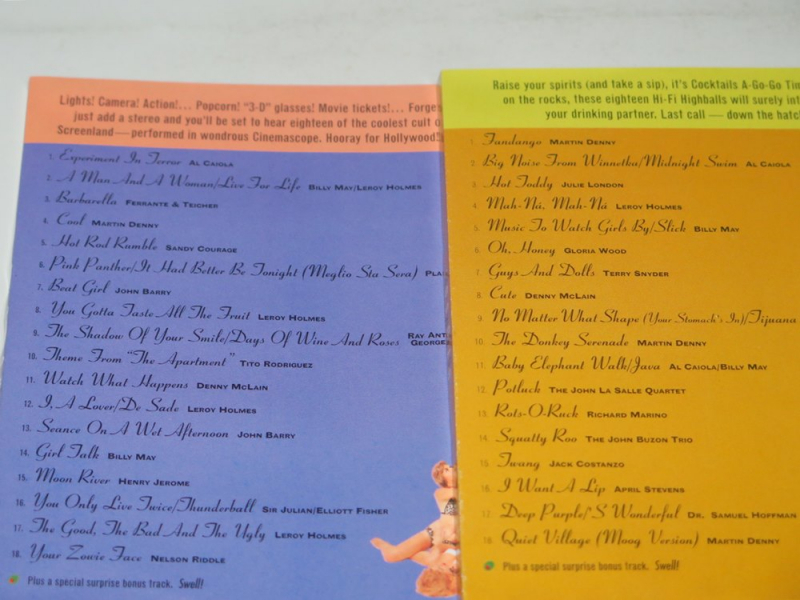 Lights! Camera! Action!... Popcorn! "3-D" glasses! Movie tickets!... Forget
just add a stereo and you'll be set to hear eighteen of the coolest cult
Screenland — performed in wondrous Cinemascope. Hooray for Hollywood!
1. Experiment In Terror AL CAIOLA
2. A Man And A Woman/Live For Life BILLY MAY/LEROY HOLMES
3. Barbarella FERRANTE & TEICHER
4. Cool MARTIN DENNY
5. Hot Rod Rumble SANDY COURAGE
6. Pink Panther/It Had Better Be Tonight (Meglio Sta Sera)
7. Beat Girl JOHN BARRY
8. You Gotta Taste All The Fruit LEROY HOLMES
9. The Shadow Of Your Smile/Days Of Wine And Roses RAY ANT
GEORGE
10. Theme From "The Apartment" TITO RODRIGUEZ
11. Watch What Happens DENNY MCLAIN
12. I, A Lover/De Sade LEROY HOLMES
13. Seance On A Wet Afternoon JOHN BARRY
14. Girl Talk BILLY MAY
15. Moon River HENRY JEROME
16. You Only Live Twice/Thunderball SIR JULIAN/ELLIOTT FISHER
17. The Good, The Bad And The Ugly LEROY HOLMES
18. Your Zowie Face NELSON RIDDLE
Plus a special surprise bonus track. Swell!
Raise your spirits (and take a sip), it's Cocktails A-Go-Go Tim
on the rocks, these eighteen Hi-Fi Highballs will surely int
your drinking partner. Last call — down the hatch
1. Fandango MARTIN DENNY
2. Big Noise From Winnetka/Midnight Swim AL CAIOLA
3. Hot Toddy JULIE LONDON
4. Mah-Ná, Mah-Ná LEROY HOLMES
5. Music To Watch Girls By/Slick BILLY MAY
6. Oh, Honey GLORIA WOOD
7. Guys And Dolls TERRY SNYDER
8. Cute DENNY MCLAIN
9. No Matter What Shape (Your Stomach's In)/Tijuana
10. The Donkey Serenade MARTIN DENNY
11. Baby Elephant Walk/Java AL CAIOLA/BILLY MAY
12. Potluck THE JOHN LA SALLE QUARTET
13. Rots-O-Ruck RICHARD MARINO
14. Squatty Roo THE JOHN BUZON TRIO
15. Twang JACK COSTANZO
16. I Want A Lip APRIL STEVENS
17. Deep Purple/'S Wonderful DR. SAMUEL HOFFMAN
18. Quiet Village (Moog Version) MARTIN DENNY
Plus a special surprise bonus track. Swell!